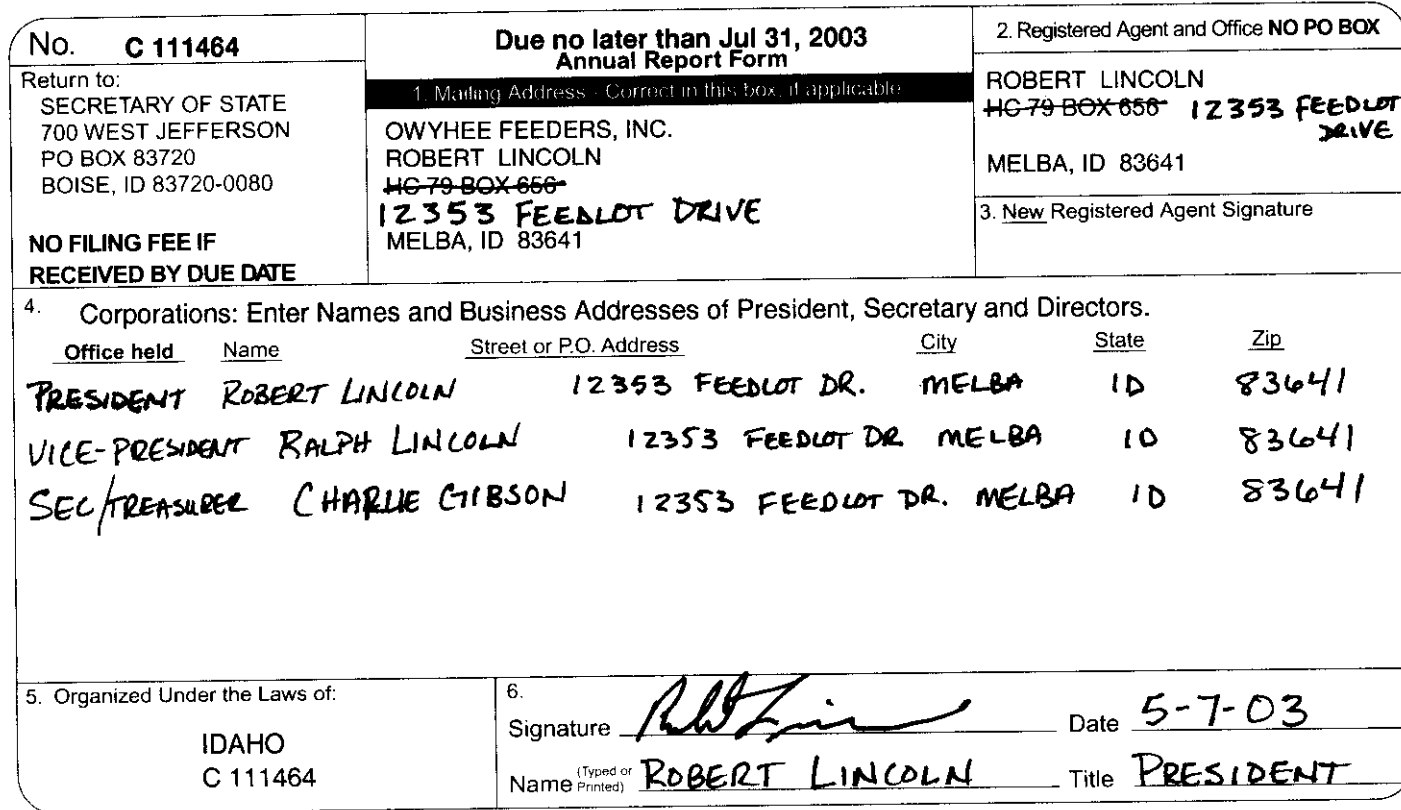 No. C 111464
Return to:
SECRETARY OF STATE
700 WEST JEFFERSON
PO BOX 83720
BOISE, ID 83720-0080
NO FILING FEE IF
RECEIVED BY DUE DATE
Due no later than Jul 31, 2003
Annual Report Form
1. Mailing Address - Correct in this box, if applicable
OWYHEE FEEDERS, INC.
ROBERT LINCOLN
HC 79 BOX 656
12353 FEEDLOT DRIVE
MELBA, ID 83641
2. Registered Agent and Office NO PO BOX
ROBERT LINCOLN
HC 79 BOX 656 12353 FEEDLOT
DRIVE
MELBA, ID 83641
3. New Registered Agent Signature
4. Corporations: Enter Names and Business Addresses of President, Secretary and Directors.
Office held Name Street or P.O. Address City State Zip
PRESIDENT ROBERT LINCOLN 12353 FEEDLOT DR. MELBA ID 83641
VICE-PRESIDENT RALPH LINCOLN 12353 FEEDLOT DR MELBA ID 83641
SEC/TREASURER CHARLIE GIBSON 12353 FEEDLOT DR. MELBA ID 83641
5. Organized Under the Laws of:
IDAHO
C 111464
6.
Signature Date 5-7-03
Name (Typed or Printed) ROBERT LINCOLN Title PRESIDENT